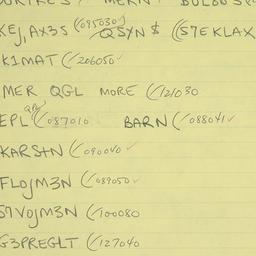 KEJ, AX3S (095030) QSYN $ ((S7EKLAX
K1MAT (206050 ✓
MER QGL MORE (121030
EPL (087010 BARN (088041 ✓
KARSTN (090040 ✓
FLOJM3N (089050 ✓
S7VOJM3N (100080
G3PREGLT (127040